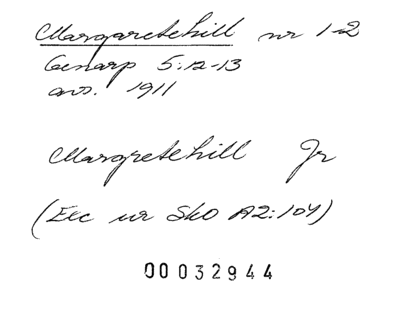 Margaretehill nr 1-2
Genarp 5:12-13
avs. 1911
Margretehill Jr
(Exc ur Sko A2:104)
00032944